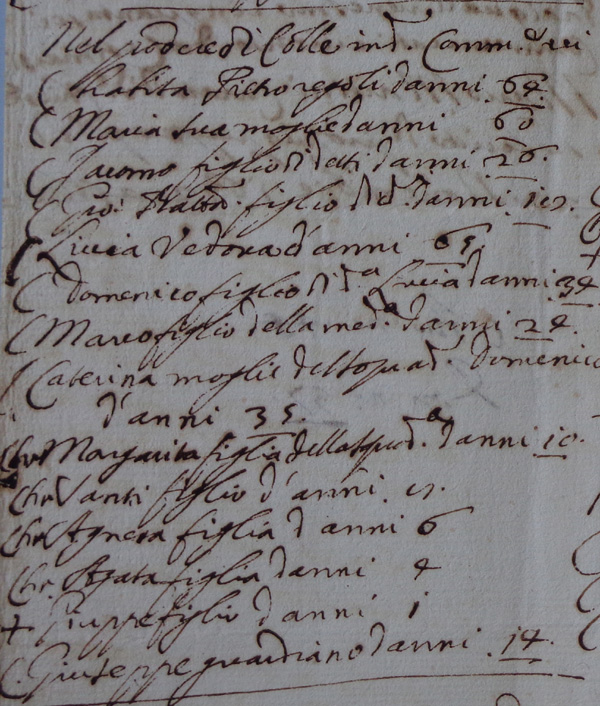 Nel podere di Colle ind. Comm.
( Batista Pietro regoli d'anni 64
( Maria sua moglie d'anni 60
( Jacomo figlio di detti d'anni 26.
( Gio: Batta. figlio di d. d'anni
( Lucia Vedova d'anni 65.
( domenico figlio di d.a Lucia d'anni 34
( Marco figlio della med.a d'anni 24.
( Caterina moglie del sop.ad. domenico
d'anni 35.
Chr Margarita figlia della soprad.a d'anni 10.
Chr Santi figlio d'anni
Chr Agnesa figlia d'anni 6
Chr. Agata figlia d'anni 4
+ Giuppe figlio d'anni 1
( Giuseppe guardiano d'anni 14.